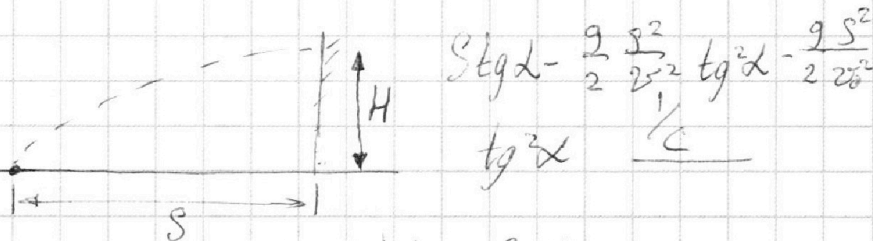 S tg α - g/2 S²/v₀² tg²α - g S²/2 v₀²
H
tg²α 1/c
S